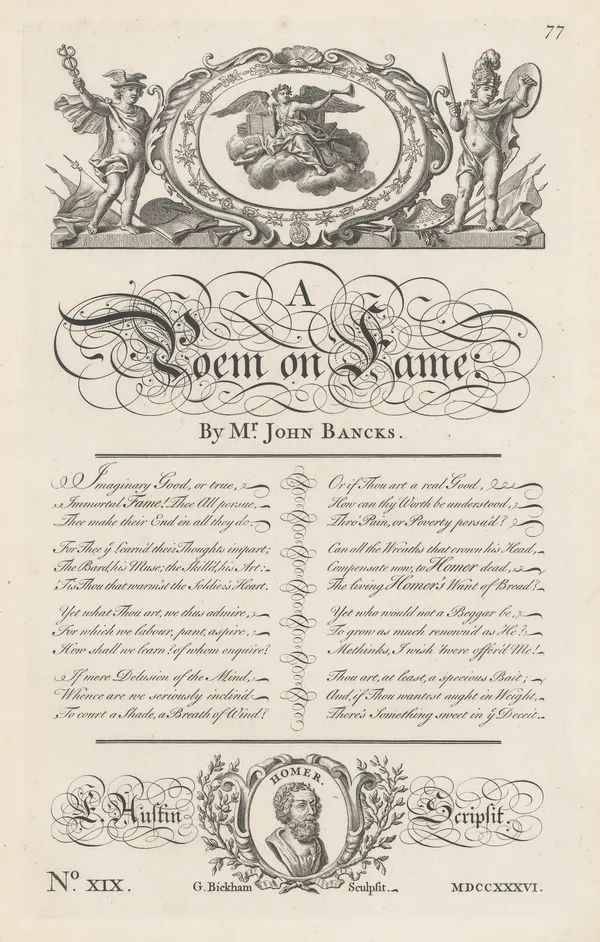 77
A
Poem on Fame:
By Mr. JOHN BANCKS.
Imaginary Good, or true,
Immortal Fame! Thee All pursue,
Thee make their End in all they do.
For Thee ye Learn'd their Thoughts impart;
The Bard, his Muse; the Skill'd, his Art:
'Tis Thou that warm'st the Soldier's Heart.
Yet what Thou art, we thus admire,
For which we labour, pant, aspire,
How shall we learn? of whom enquire?
If mere Delusion of the Mind,
Whence are we seriously inclin'd
To court a Shade, a Breath of Wind?
Or if Thou art a real Good,
How can thy Worth be understood,
Thro' Pain, or Poverty persu'd?
Can all the Wreaths that crown his Head,
Compensate now, to Homer dead,
The living Homer's Want of Bread?
Yet who would not a Beggar be,
To grow as much renown'd as He?
Methinks, I wish 'twere offer'd Me!
Thou art, at least, a specious Bait;
And, if Thou wantest aught in Weight,
There's Something sweet in ye Deceit.
HOMER.
E. Austin Scripsit.
No. XIX.
G. Bickham Sculpsit.
MDCCXXXVI.